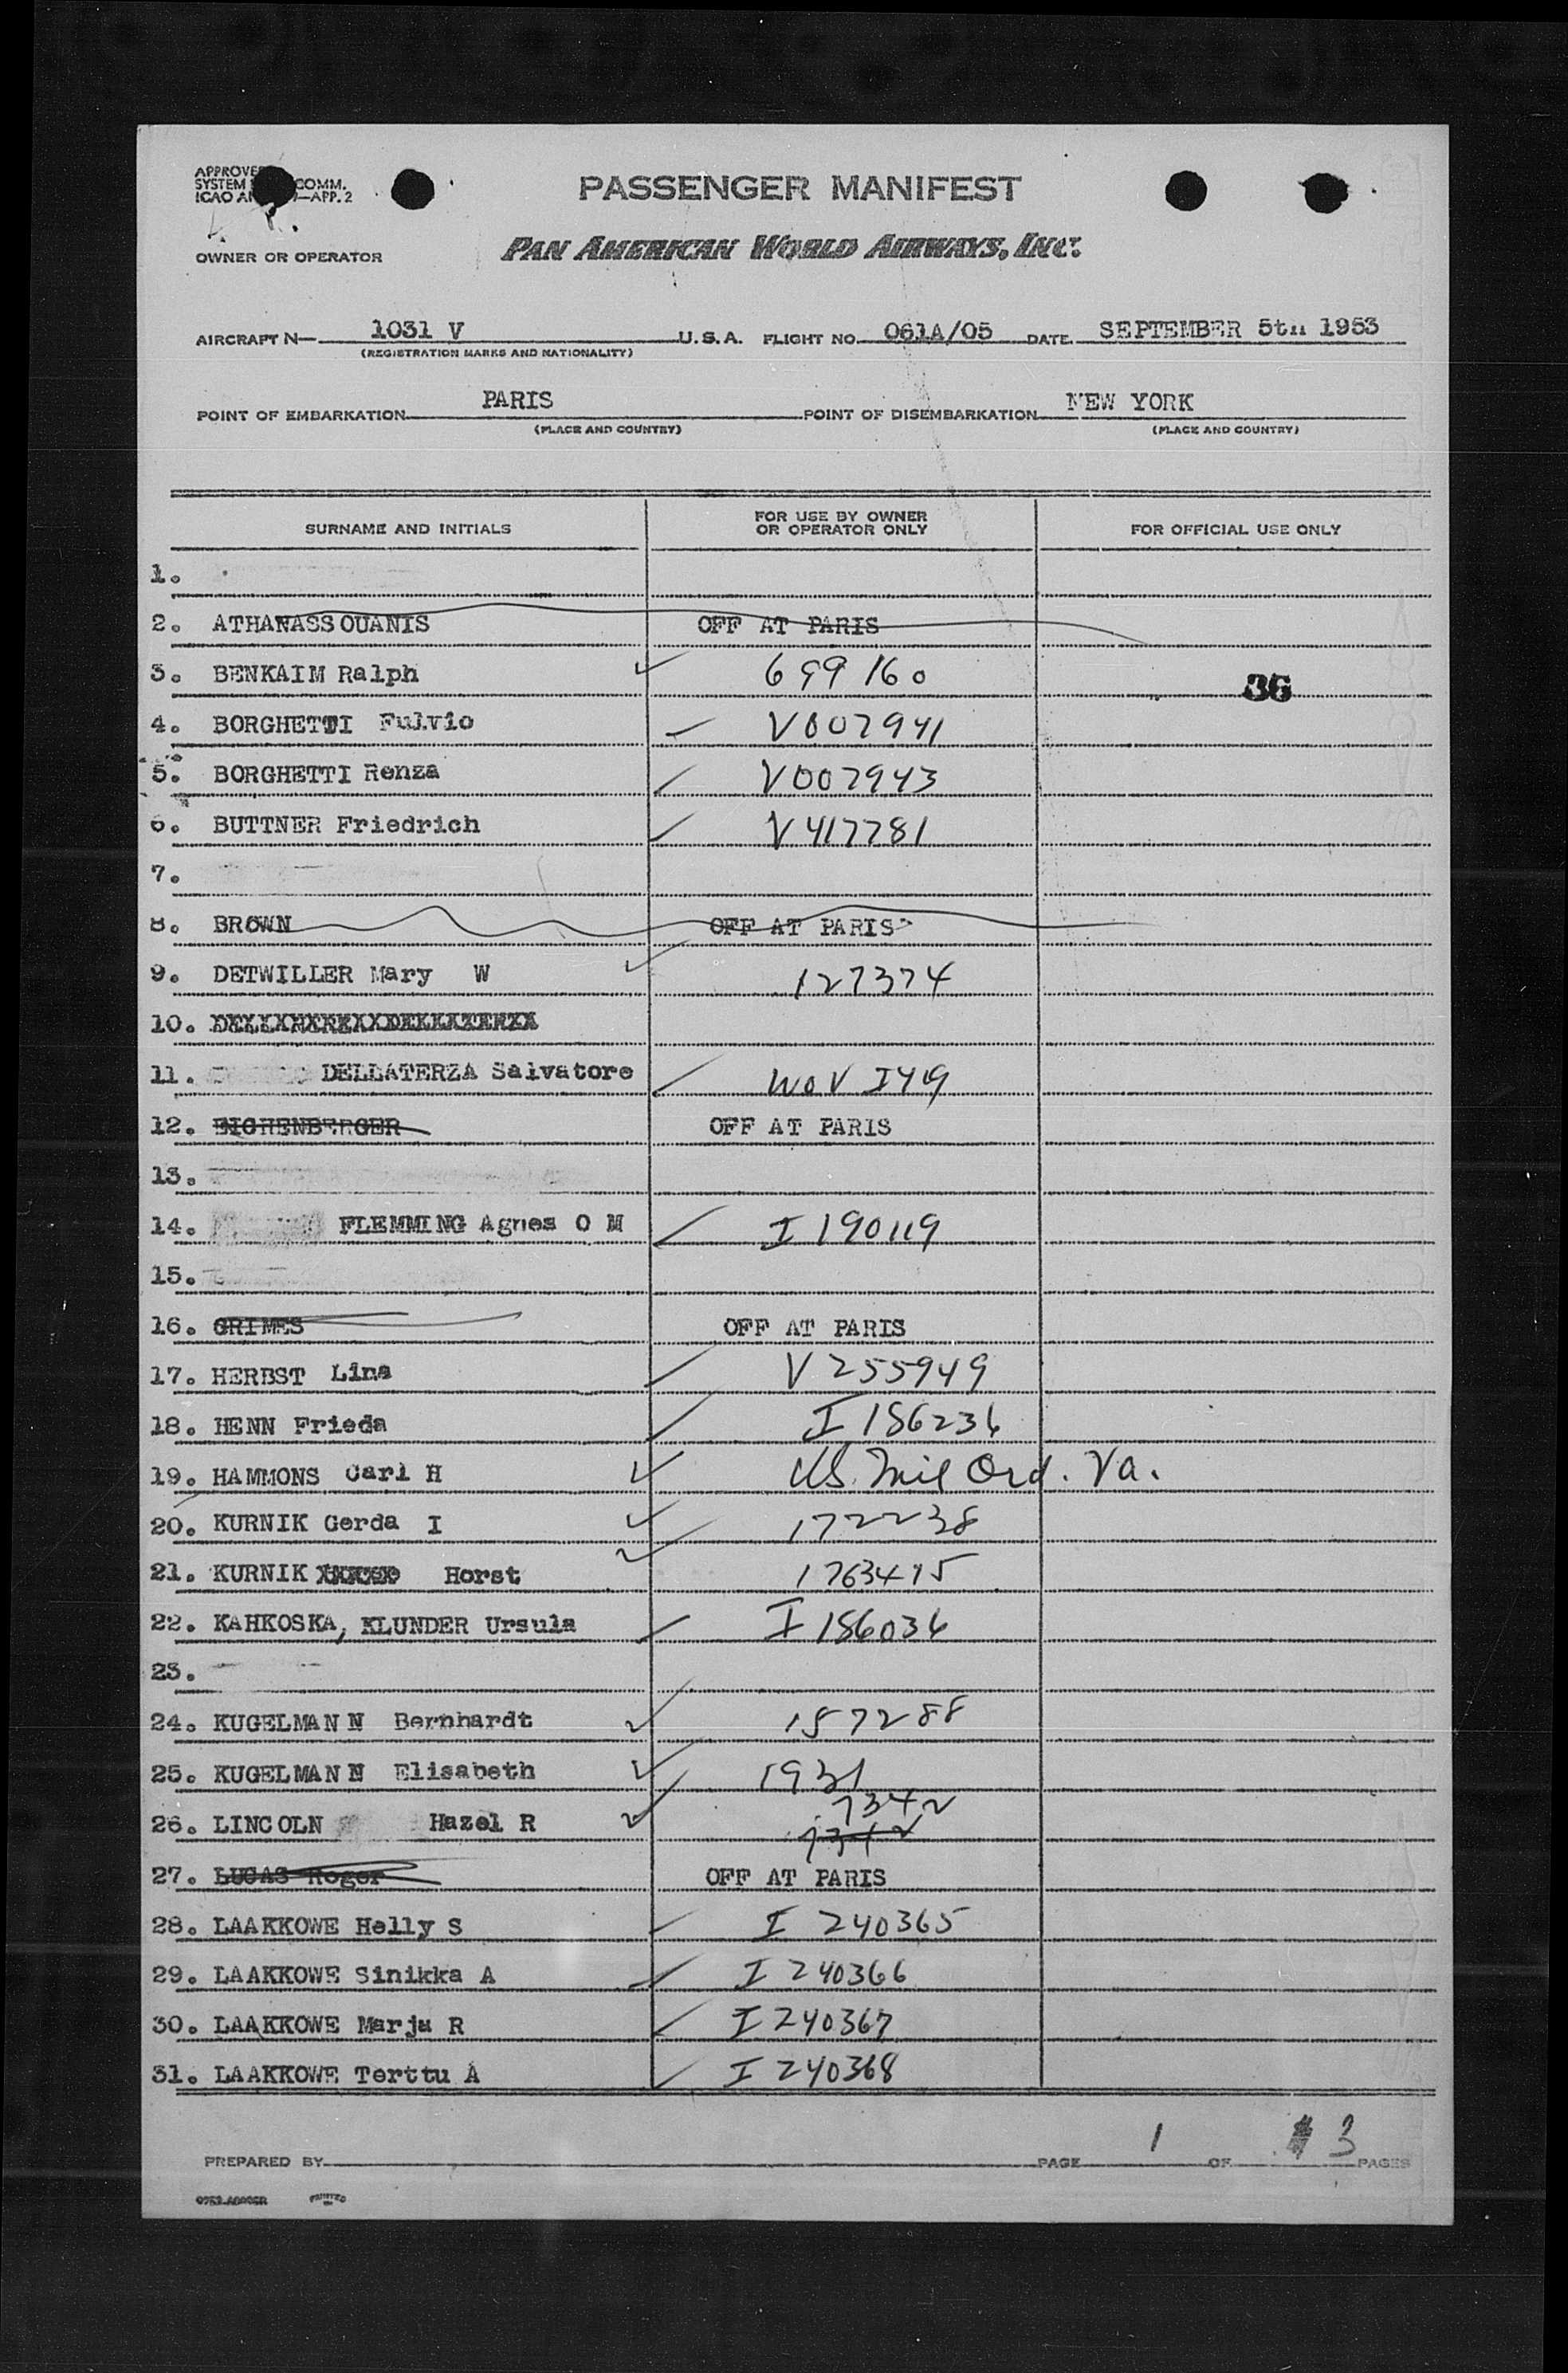 PASSENGER MANIFEST
COMM.
—APP. 2
OWNER OR OPERATOR
PAN AMERICAN WORLD AIRWAYS, INC.
AIRCRAFT N— 1031 V U.S.A. FLIGHT NO. 061A/05 DATE SEPTEMBER 5th 1953
(REGISTRATION MARKS AND NATIONALITY)
POINT OF EMBARKATION PARIS POINT OF DISEMBARKATION NEW YORK
(PLACE AND COUNTRY) (PLACE AND COUNTRY)
SURNAME AND INITIALS FOR USE BY OWNER OR OPERATOR ONLY FOR OFFICIAL USE ONLY
1.
2. ATHANASSOUANIS OFF AT PARIS
3. BENKAIM Ralph 699160 36
4. BORGHETTI Fulvio V007941
5. BORGHETTI Renza V007943
6. BUTTNER Friedrich V417781
7.
8. BROWN OFF AT PARIS
9. DETWILLER Mary W 127374
10.
11. DELLATERZA Salvatore
12. EICHENBERGER OFF AT PARIS
13.
14. FLEMMING Agnes O M I 190119
15.
16. GRIMES OFF AT PARIS
17. HERBST Lina V 255949
18. HENN Frieda I 186236
19. HAMMONS Carl H US. Mil Ord. Va.
20. KURNIK Gerda I 172238
21. KURNIK Horst 1763415
22. KAHKOSKA, KLUNDER Ursula I 186036
23.
24. KUGELMANN Bernhardt 157288
25. KUGELMANN Elisabeth 1931
26. LINCOLN Hazel R 7342
7342
27. LUCAS Roger OFF AT PARIS
28. LAAKKOWE Helly S I 240365
29. LAAKKOWE Sinikka A I 240366
30. LAAKKOWE Marju R I 240367
31. LAAKKOWE Terttu A I 240368
PREPARED BY PAGE 1 OF 3 PAGES